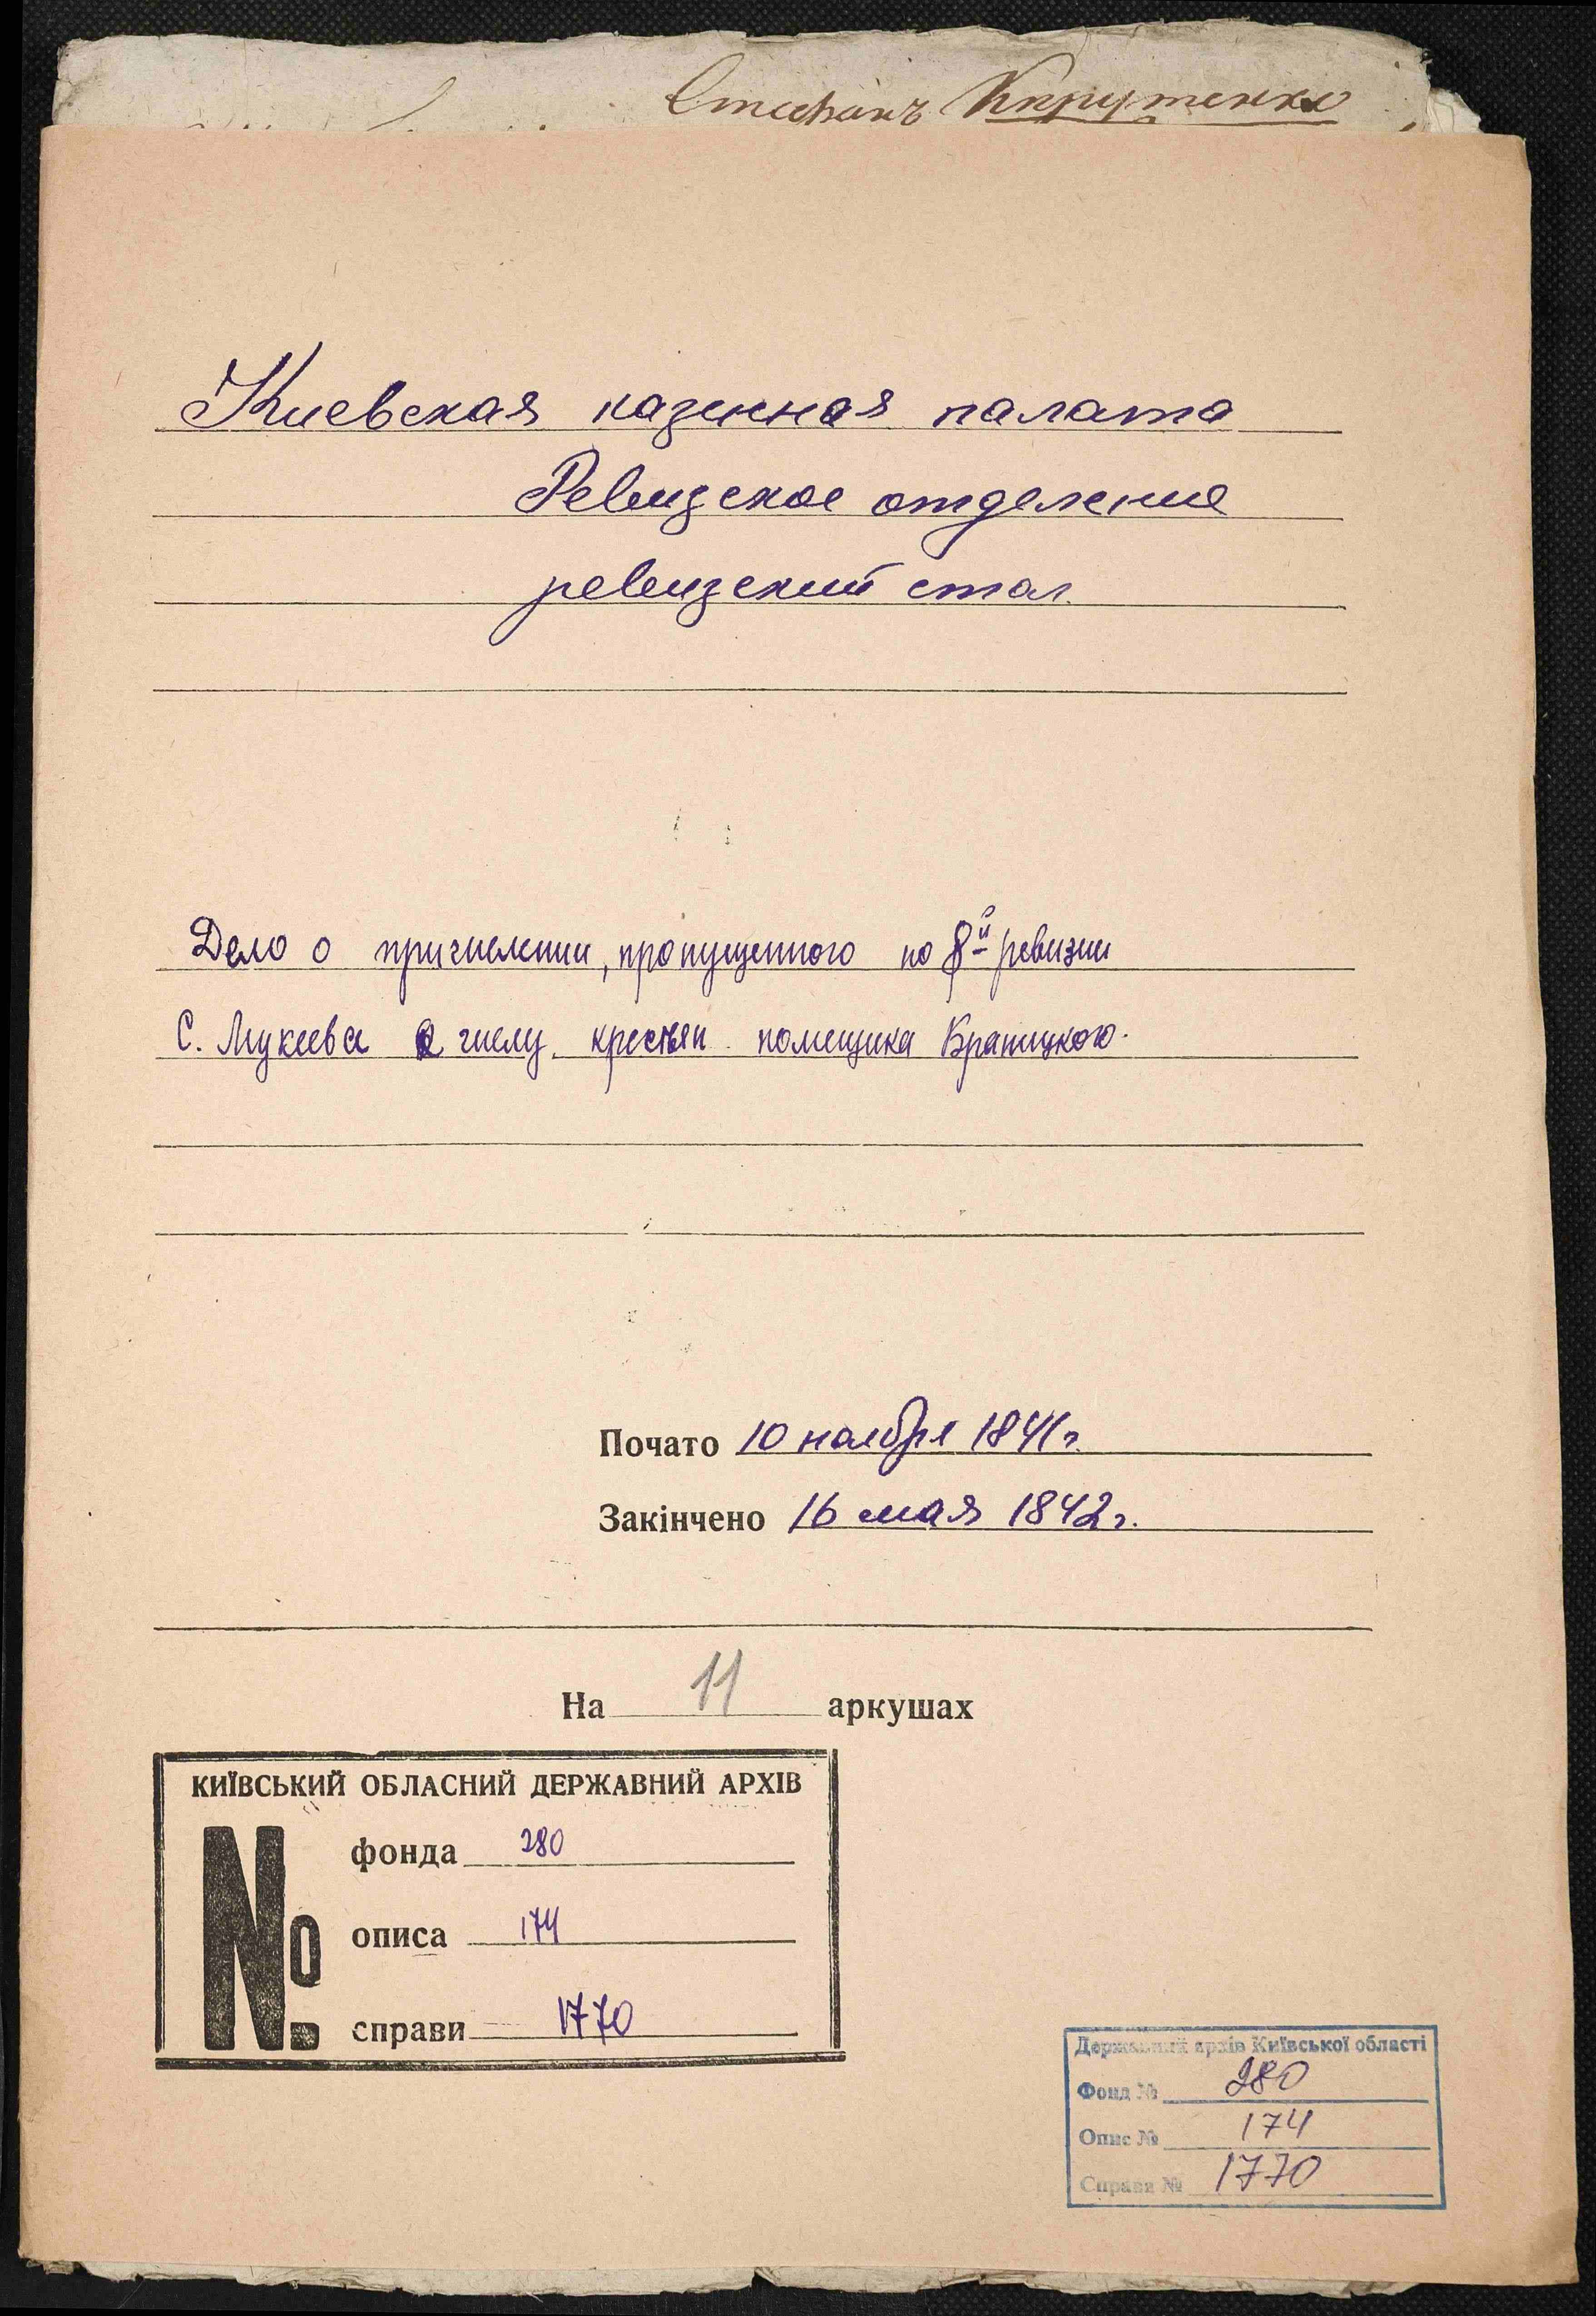 Стефанъ
Киевская казенная палата
Ревизское отделение
ревизский стол.
Дело о причислении, пропущенного по 8й ревизии
С. Мукеева к числу крестьян помещика Браницкого.
Почато 10 ноября 1841 г.
Закінчено 16 мая 1842 г.
На 11 аркушах
КИЇВСЬКИЙ ОБЛАСНИЙ ДЕРЖАВНИЙ АРХІВ
№ фонда 280
описа 174
справи 1770
Державний архів Київської області
Фонд № 280
Опис № 174
Справа № 1770